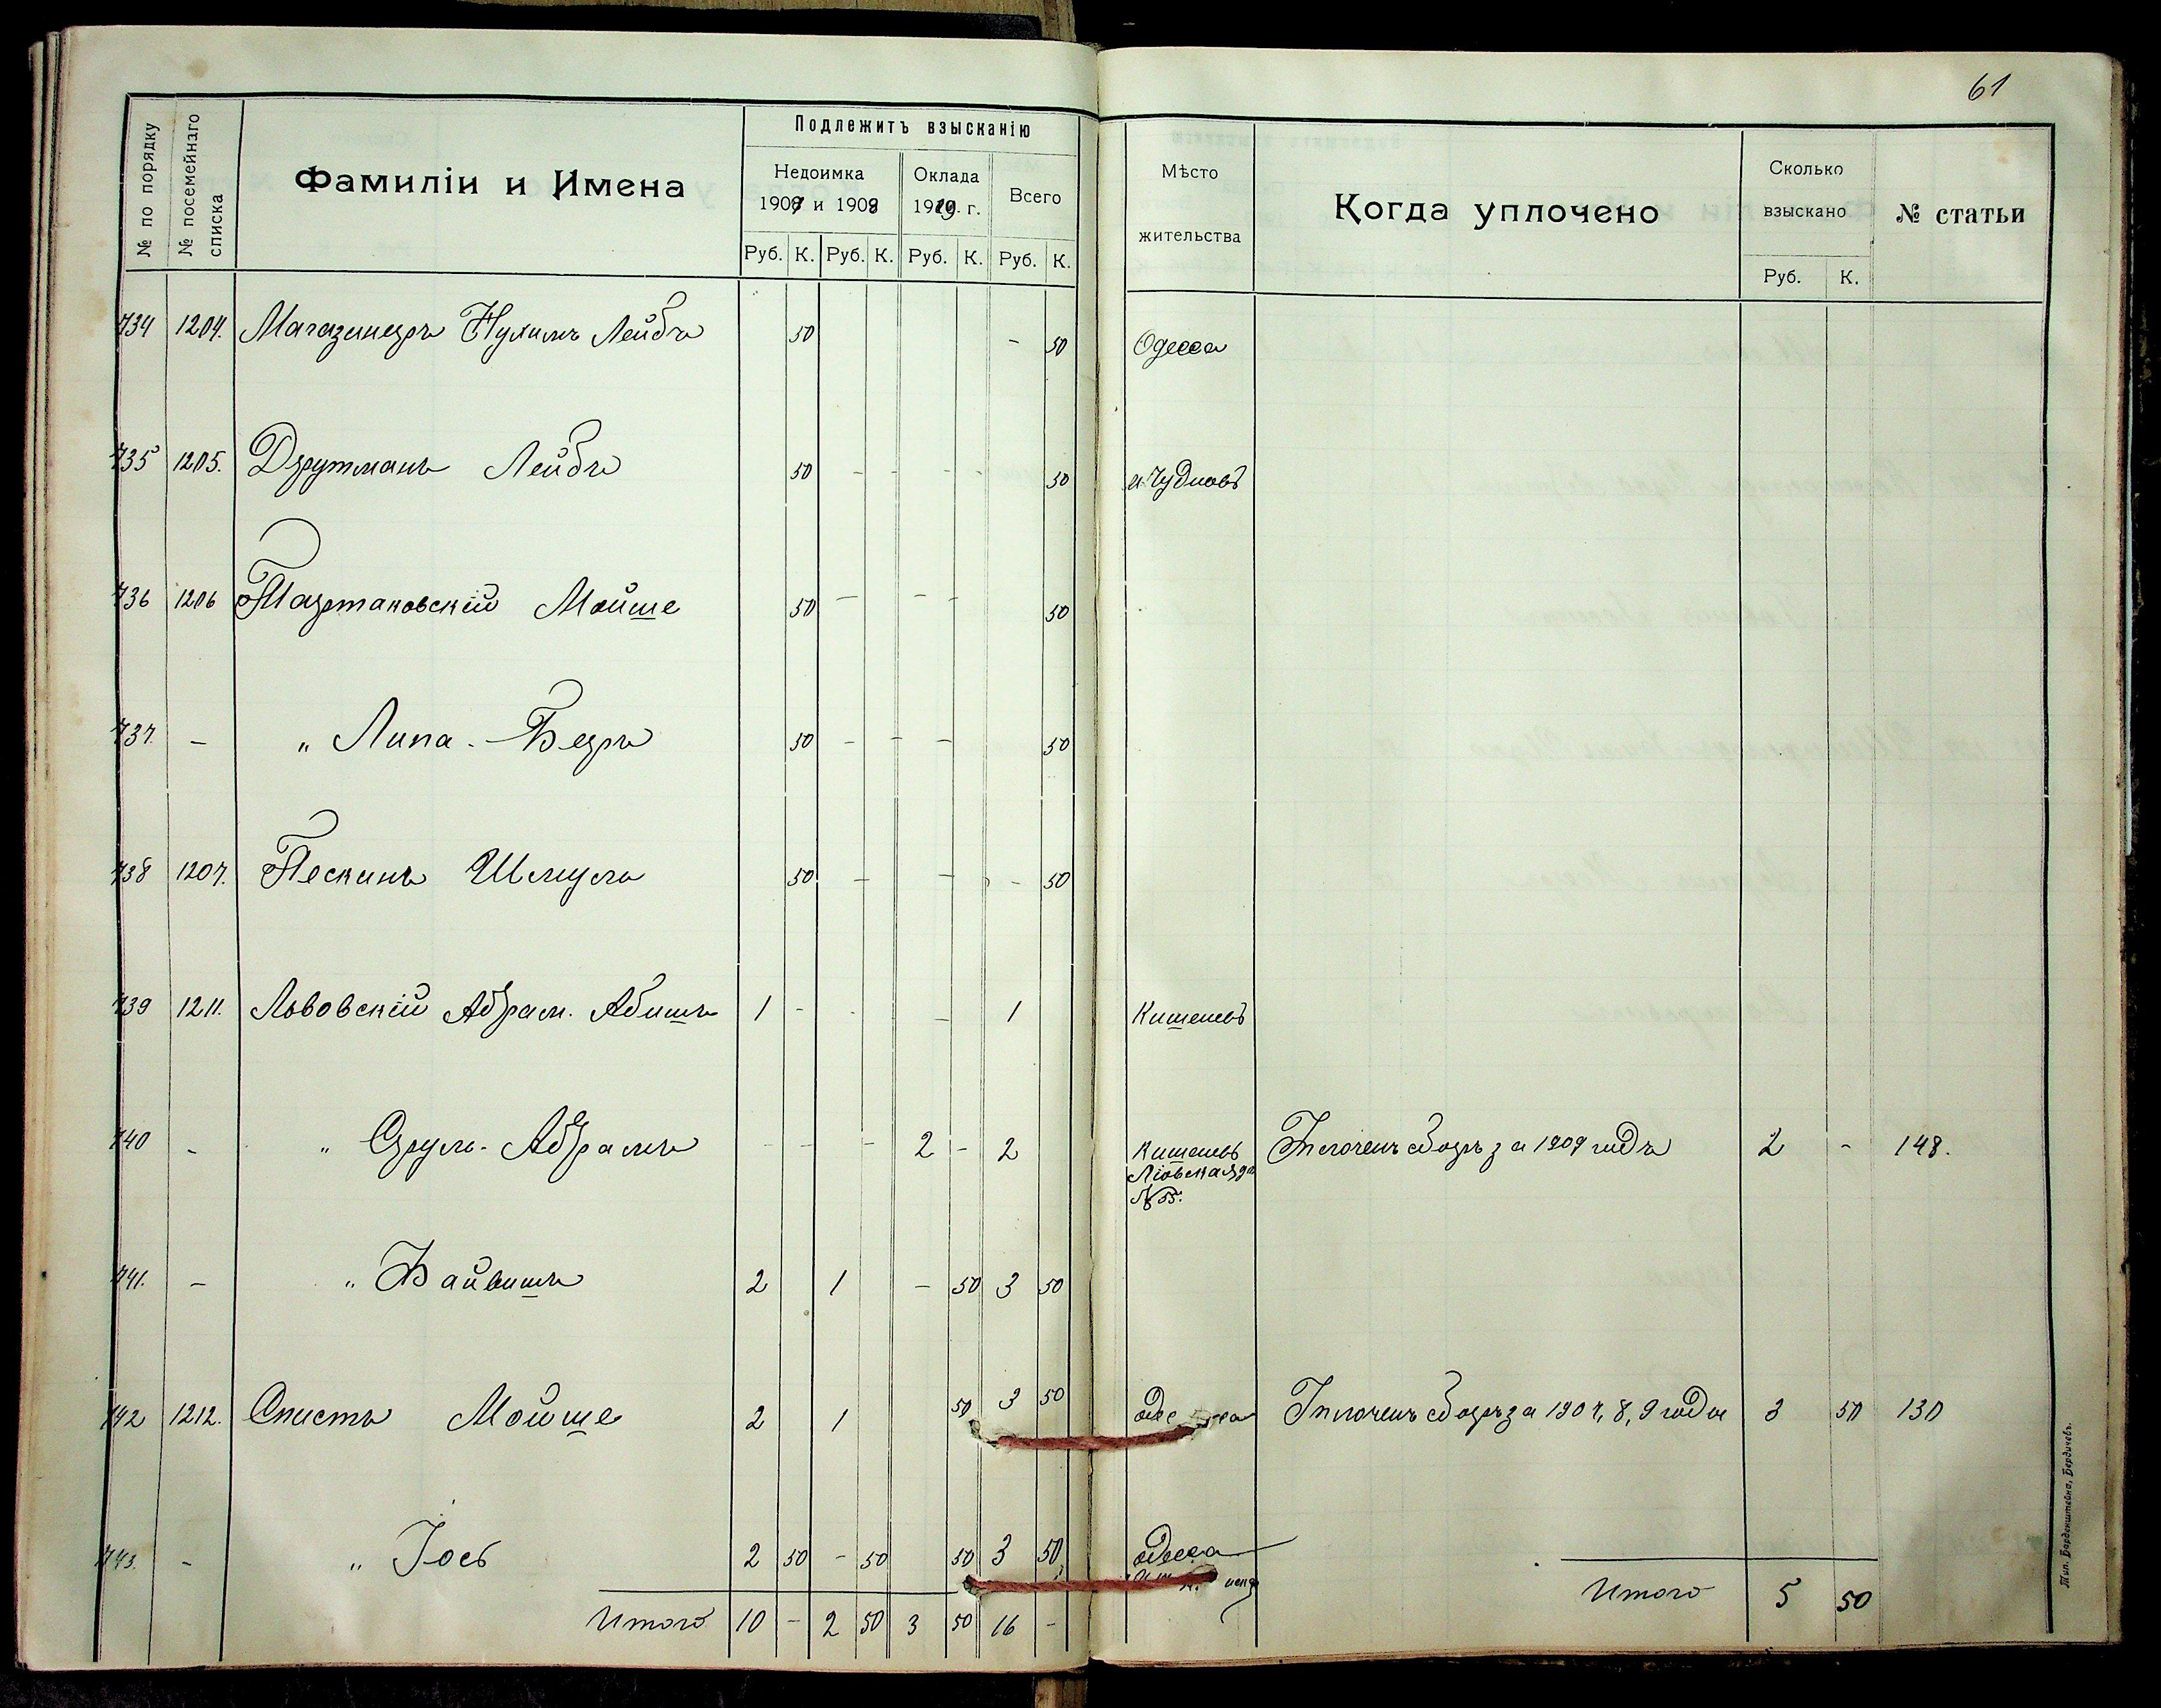 61
№ по порядку
№ посемейнаго списка
Фамиліи и Имена
Подлежитъ взысканію
Недоимка
1907 и 1908
Оклада
1909 г.
Всего
Руб. К. Руб. К. Руб. К. Руб. К.
Мѣсто
жительства
Когда уплочено
Сколько
взыскано
Руб. К.
№ статьи
734 1204. Магазинеръ Нухимъ Лейбъ 50 - 50 Одесса
735 1205. Друтманъ Лейбъ 50 - - - - 50 м. Чудновъ
736 1206 Партаковскій Мойше 50 - - - 50
737. - " Липа-Беръ 50 - - - 50
738 1207. Пескинъ Шмуль 50 - - - 50
739 1211. Львовскій Абрам. Абишъ 1 - - - 1 Кишеневъ
740 - " Сруль-Абрамъ - - - 2 - 2 Кишеневъ Уплоченъ сборъ за 1909 годъ 2 - 148.
№ 55.
741. - " Файвишъ 2 1 - 50 3 50
742 1212. Спистъ Мойше 2 1 50 3 50 Одесса Уплоченъ сборъ за 1907, 8, 9 годы 3 50 130
743. - " Іось 2 50 - 50 50 3 50 Одесса
Итого 10 - 2 50 3 50 16 -
Итого 5 50
Тип. Барденштейна, Бердичевъ.